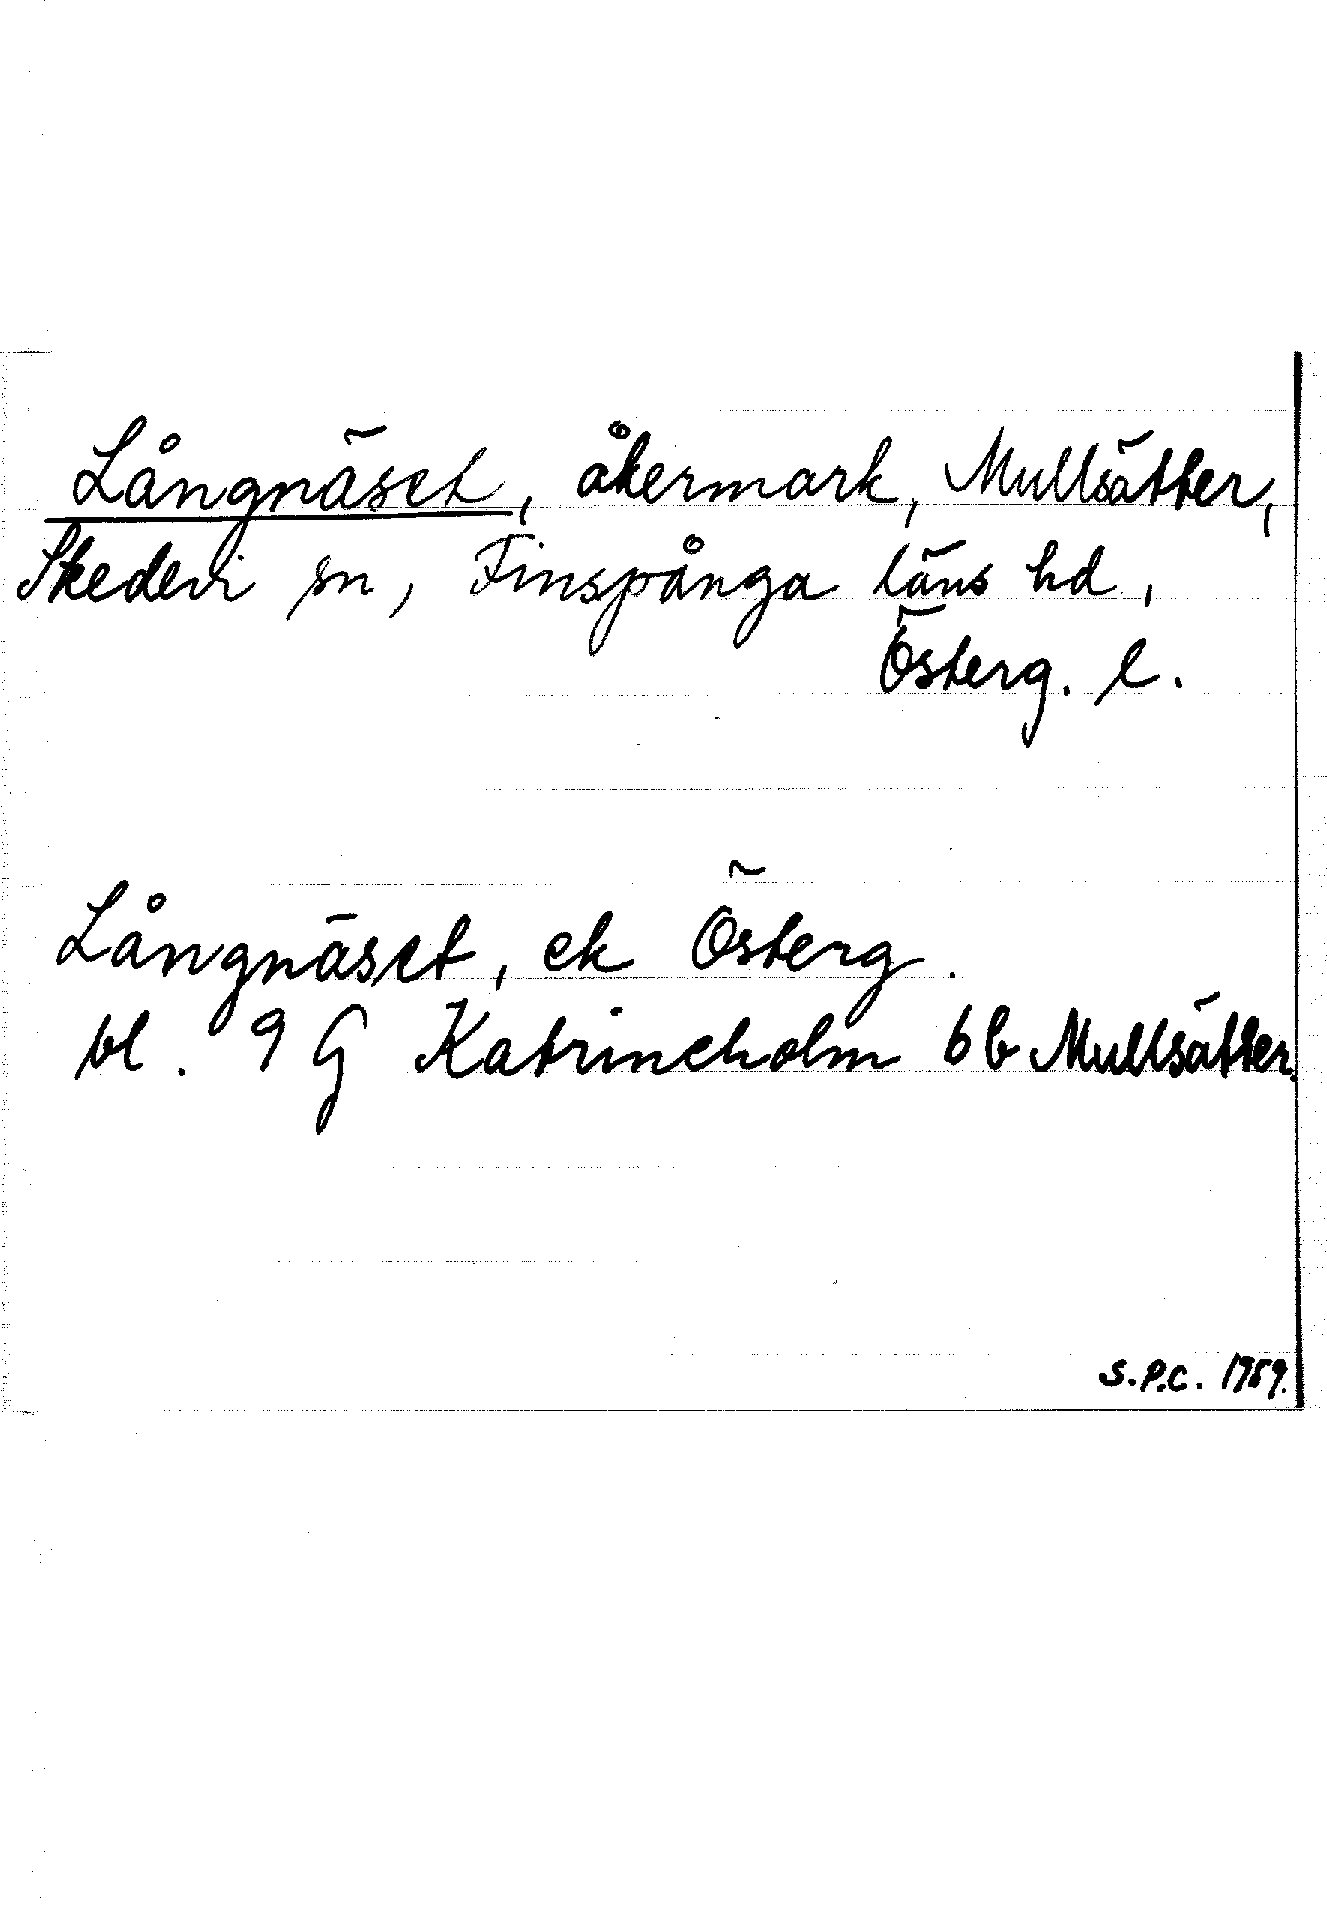 Långnäset, åkermark, Mullsätter,
Skedevi sn, Finspånga läns hd,
Österg. l.
Långnäset, ek Österg.
bl. 9 G Katrineholm 6b Mullsätter.
S.P.C. 1989.